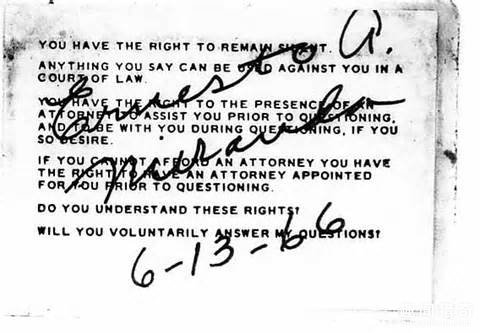 YOU HAVE THE RIGHT TO REMAIN SILENT.
ANYTHING YOU SAY CAN BE USED AGAINST YOU IN A
COURT OF LAW.
YOU HAVE THE RIGHT TO THE PRESENCE OF AN
ATTORNEY TO ASSIST YOU PRIOR TO QUESTIONING,
AND TO BE WITH YOU DURING QUESTIONING, IF YOU
SO DESIRE.
IF YOU CANNOT AFFORD AN ATTORNEY YOU HAVE
THE RIGHT TO HAVE AN ATTORNEY APPOINTED
FOR YOU PRIOR TO QUESTIONING.
DO YOU UNDERSTAND THESE RIGHTS?
WILL YOU VOLUNTARILY ANSWER MY QUESTIONS?
Ernesto A.
Miranda
6-13-66